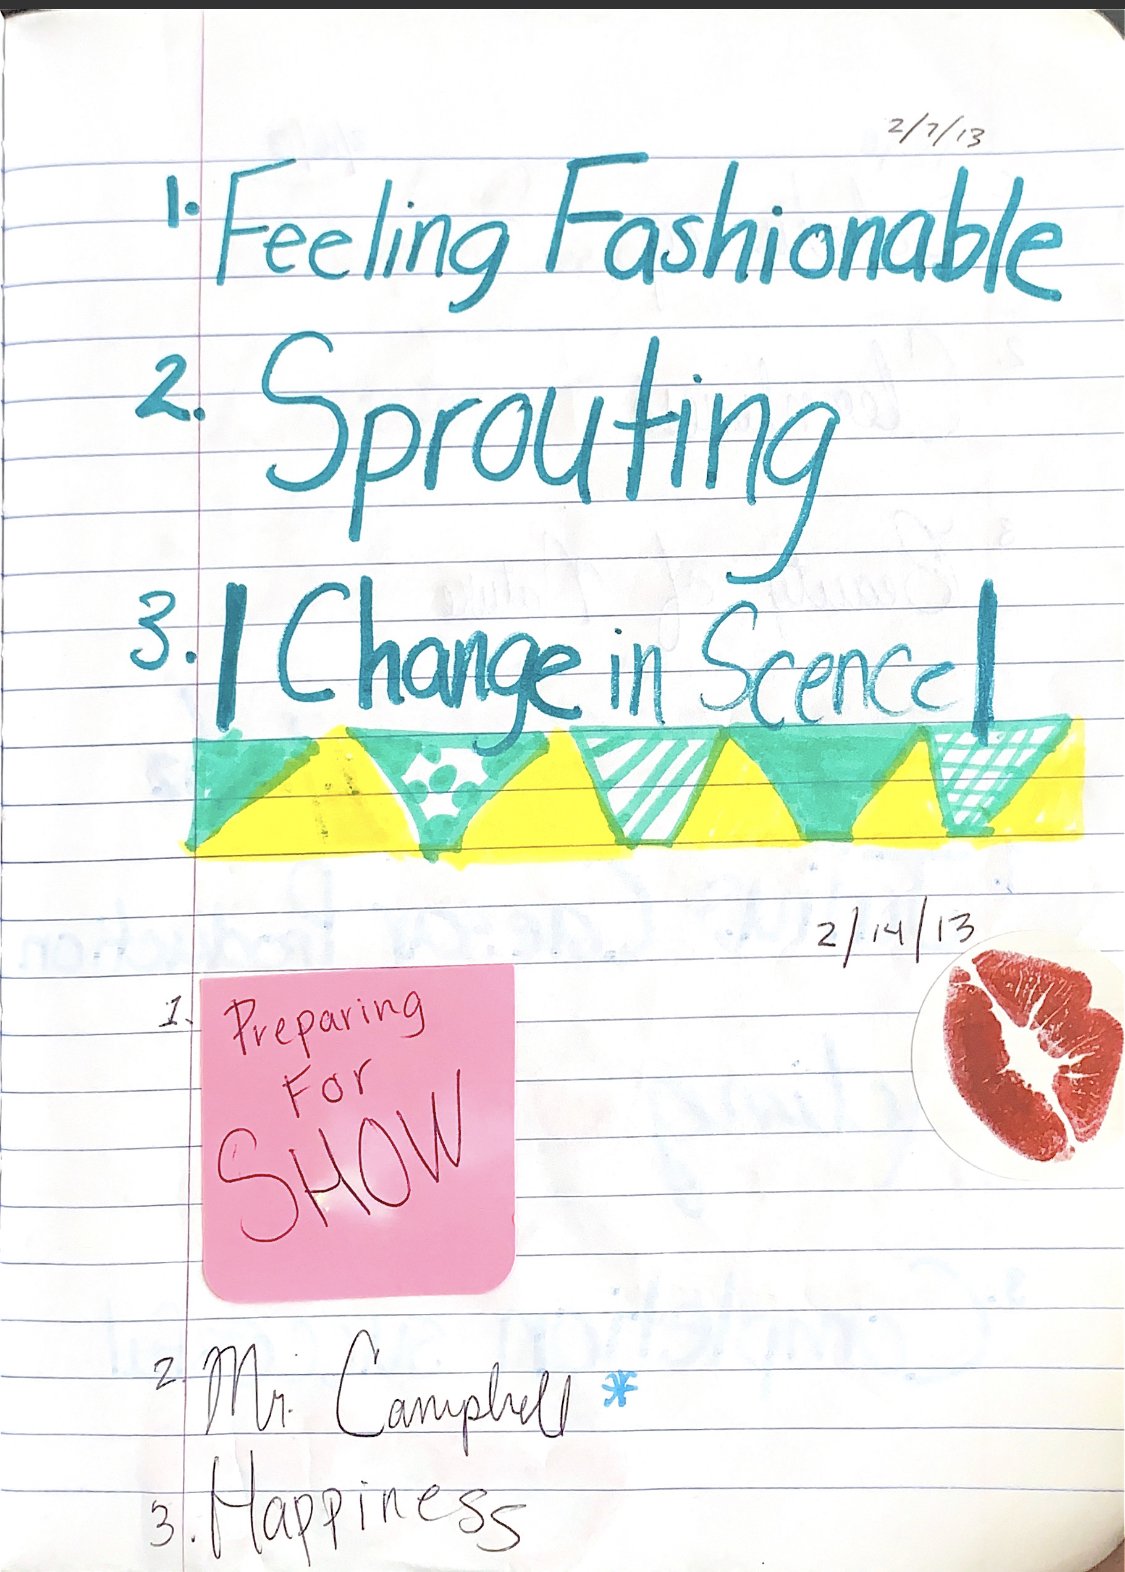 2/7/13
1. Feeling Fashionable
2. Sprouting
3. | Change in Scence |
2/14/13
1. Preparing
For
SHOW
2. Mr. Campbell *
3. Happiness